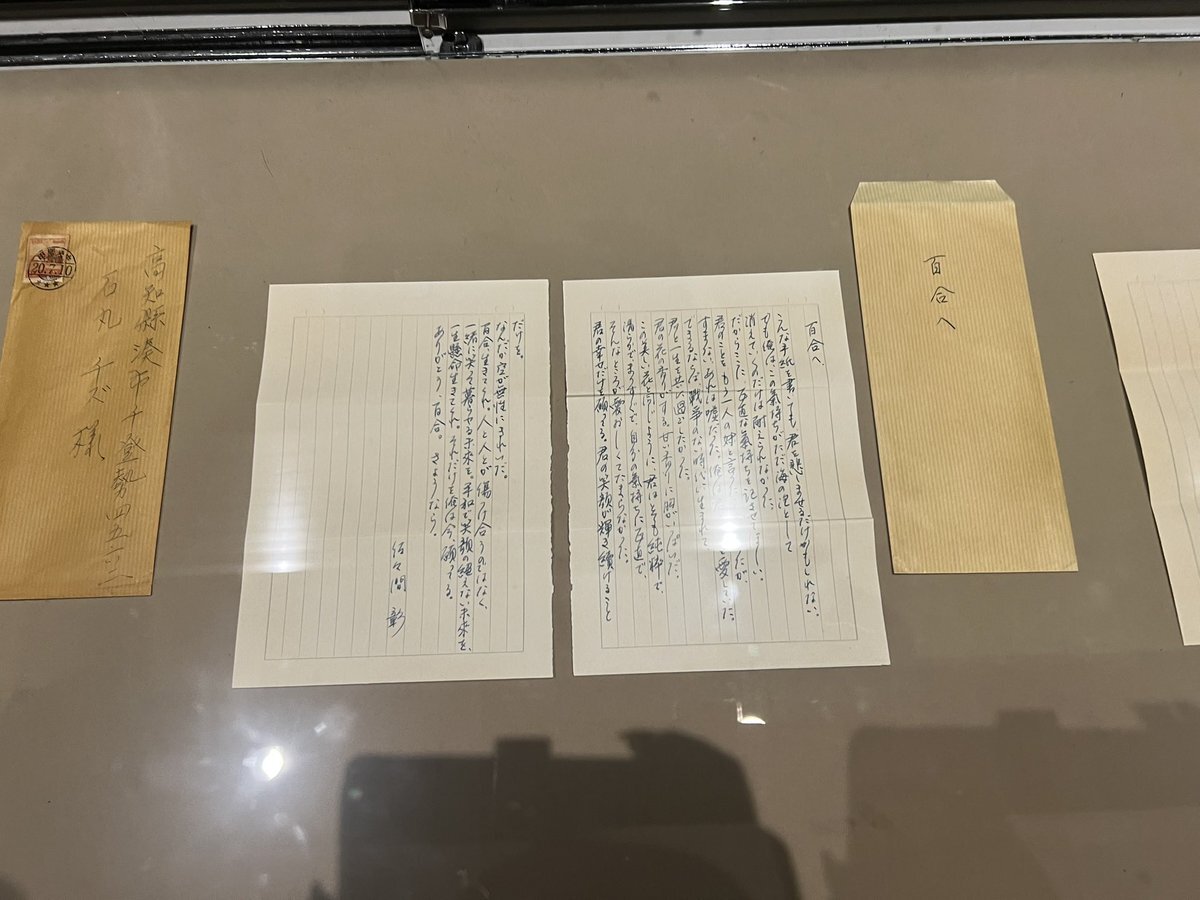 百合へ
百合へ、
こんな手紙を書いても君を悲しませるだけかもしれない。
でも俺は、この氣持ちがただ海の泡として
消えていくのだけは耐えられなかった。
だからここに、正直な氣持ちを記させてほしい。
君のことをもう一人の妹と言っただが
すまない、あれは嘘だった。俺は愛していた。
できるならば、戦争のない時代に生まれて
君と一生を共に過ごしたかった。
君の花の香りがする。甘い香りに胸がいっぱいだ。
この美しい花と同じように、君はとても純粋で、
清らかでまっすぐで、自分の氣持ちに正直で
そんなところが愛おしくてたまらなかった。
君の幸せだけを願ってる。君の笑顔が輝き続けること
だけを。
なんだか空が無性にきれいだ。
百合、生きてくれ。人と人とが傷つけ合うのではなく、
一緒に笑って暮らせる未来を。平和で笑顔の絶えない未来を、
一生懸命生きてくれ。それだけを俺は今、願ってる。
ありがとう、百合。さようなら。
佐久間 彰
高知縣湊市十登勢四五
石丸 チズ 様
20.7.10